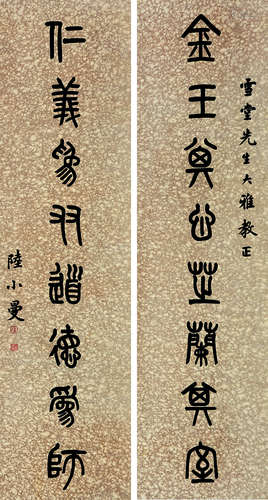 雪堂先生大雅教正
金玉其心芝蘭其室
仁義為友道德為師
陸小曼